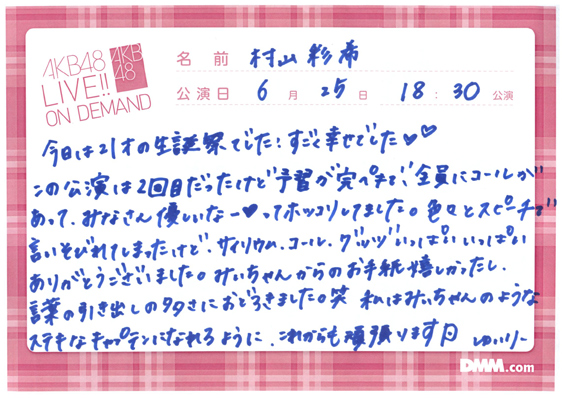 AKB48
LIVE!!
ON DEMAND
AKB
48
名前 村山彩希
公演日 6月25日 18:30公演
今日は21才の生誕祭でした!すごく幸せでした♥♡
この公演は2回目だったけど予習が完ペキで、全員にコールが
あって、みなさん優しいなー♥ってホッコリしてました。色々とスピーチで
言いそびれてしまったけど、サイリウム、コール、グッズいっぱいいっぱい
ありがとうございました。みぃちゃんからのお手紙嬉しかったし、
言葉の引き出しの多さにおどろきました。笑 私はみぃちゃんのような
ステキなキャプテンになれるように、これからも頑張ります
ゆいりー
DMM.com